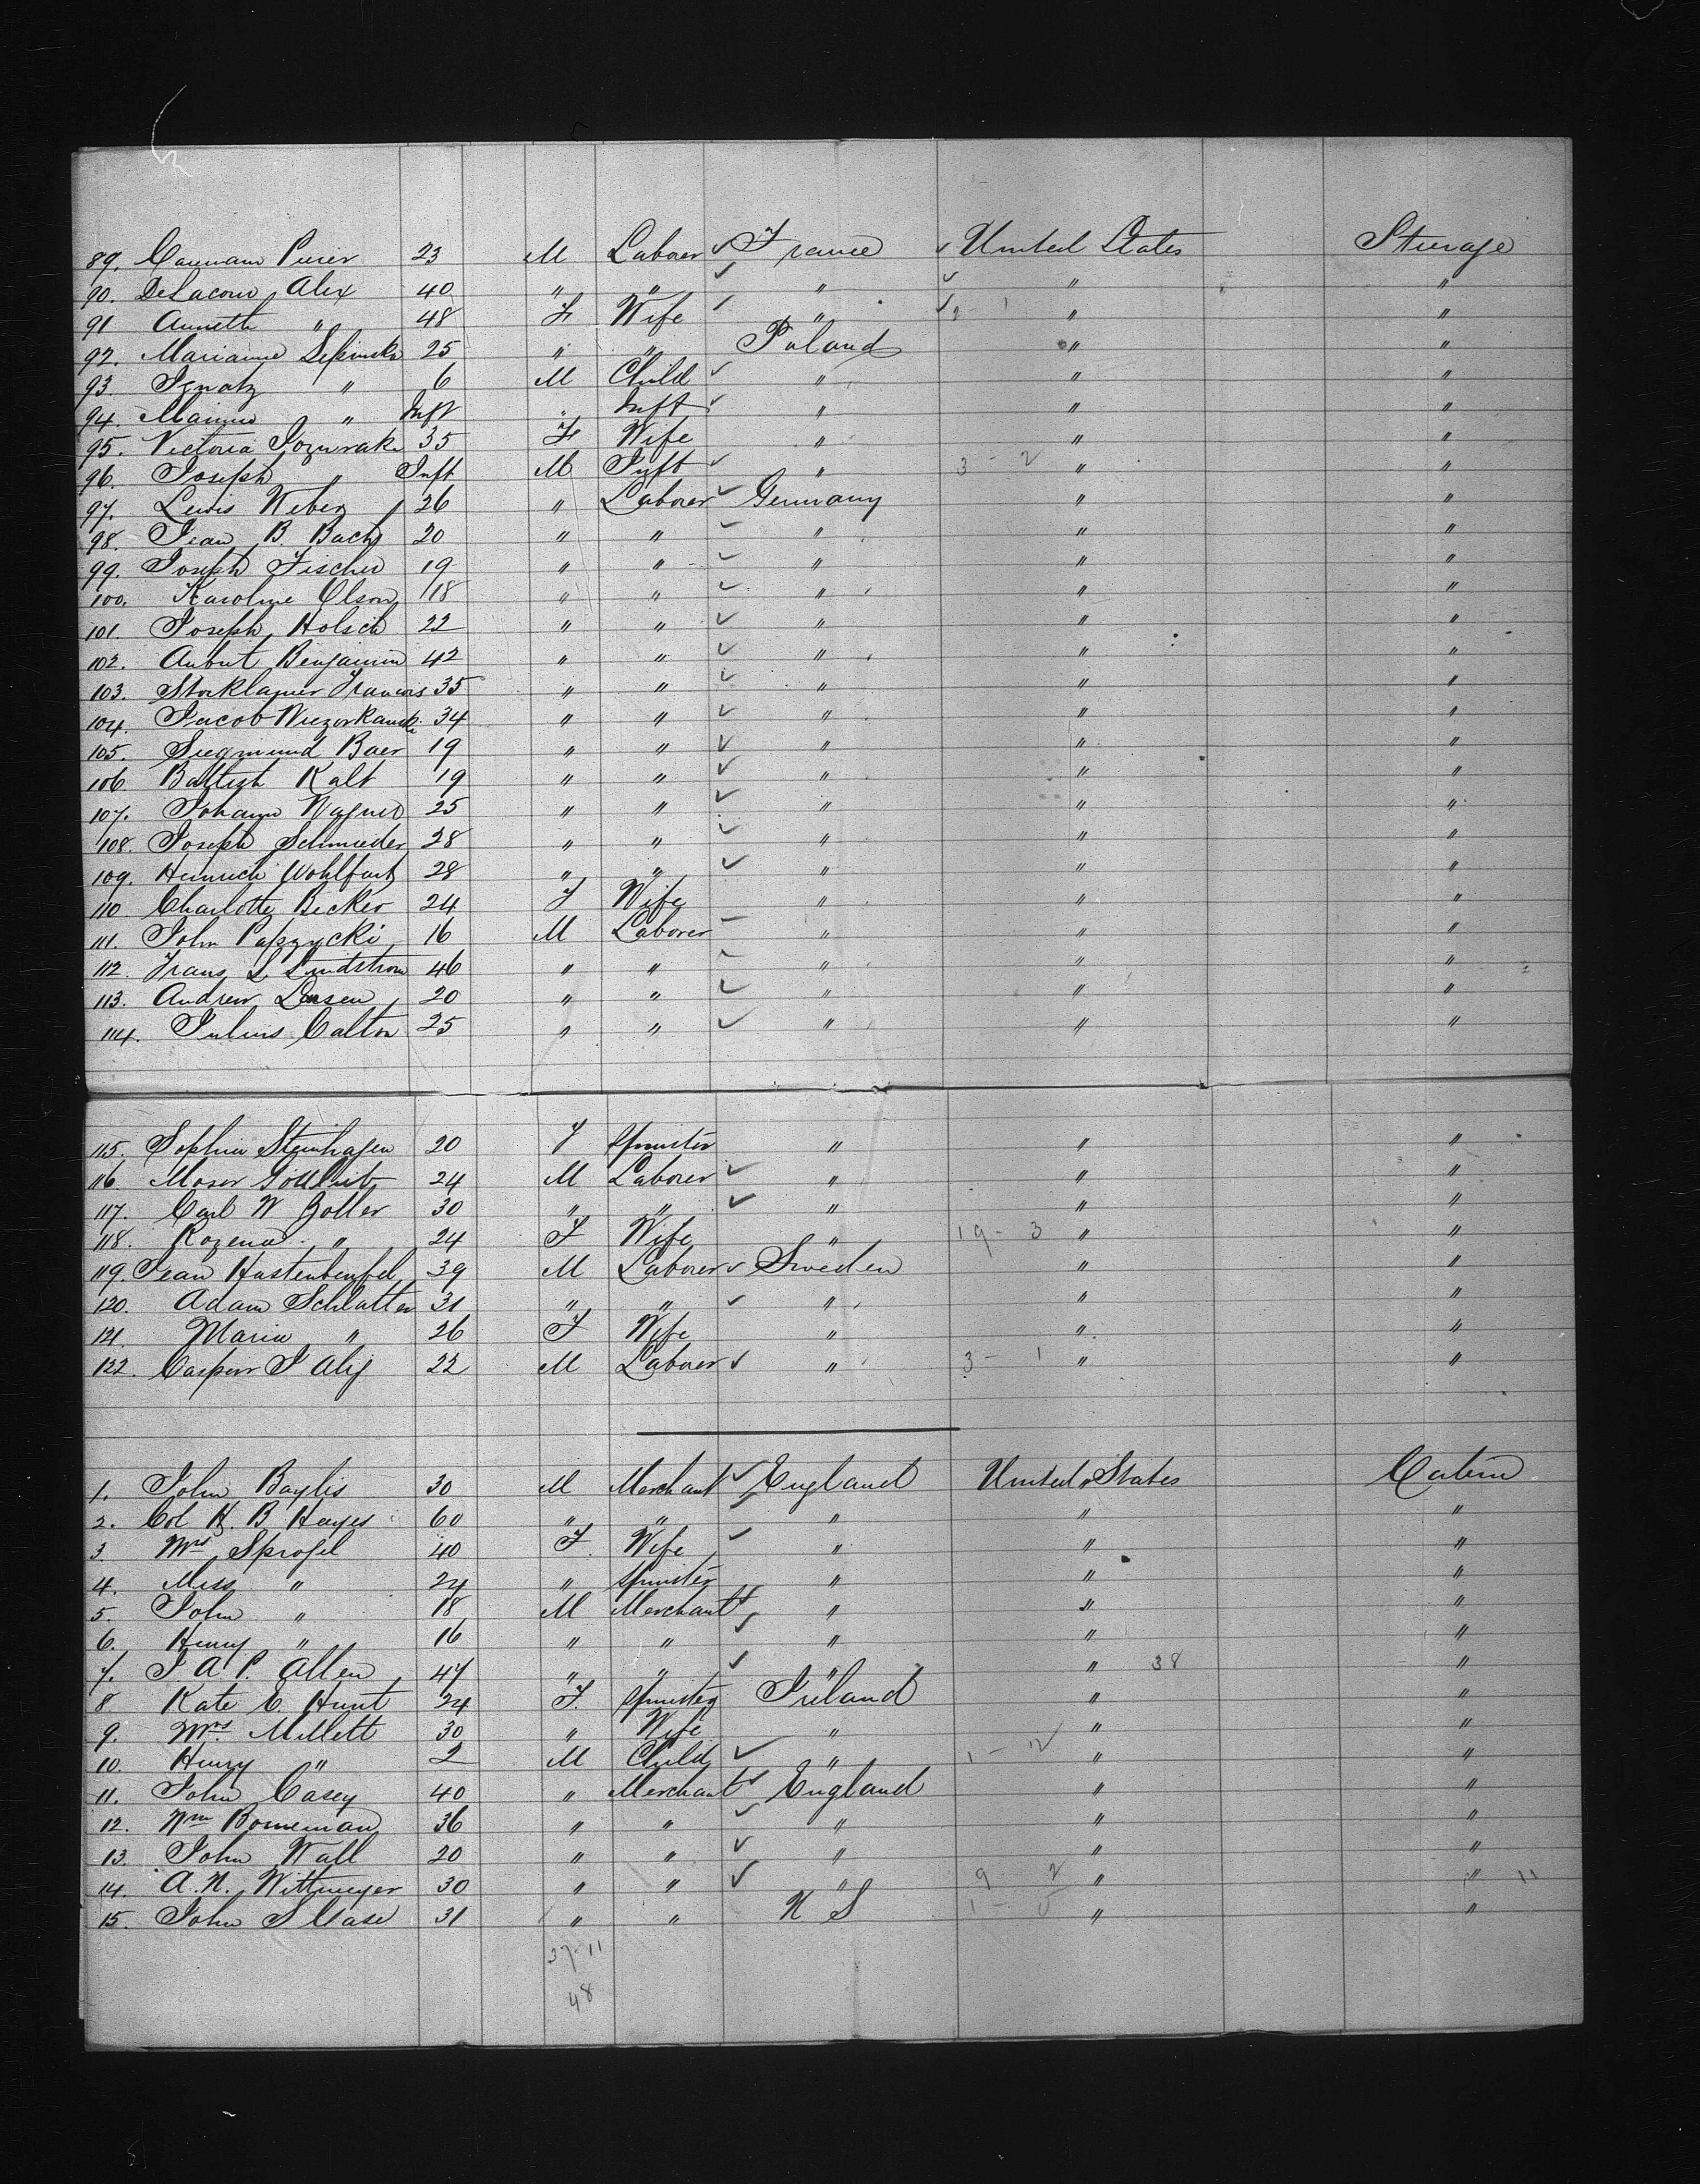 89. Caumam Purier 23 M Laborer ✓ France ✓ United States Steerage
90. DeLacour Alex 40 " " ✓ " ✓ " "
91 Anneth " 48 F Wife ✓ " ✓ 2 - 1 " "
92. Marianne 25 " " Poland " "
93. Ignatz " 6 M Child ✓ " " "
94. " Inft " Inft ✓ " " "
95. Victoria 35 F Wife " " "
96. Joseph " Inft M Inft ✓ " 3 - 2 " "
97. Lewis Weber 26 " Laborer ✓ Germany " "
98. Jean B. Bach 20 " " ✓ " " "
99. Joseph Fischer 19 " " ✓ " " "
100. Karoline Olson 18 " " ✓ " " "
101. Joseph Holsch 22 " " ✓ " " "
102. Benjamin 42 " " ✓ " " "
103. Francois 35 " " ✓ " " "
104. Jacob 34 " " ✓ " " "
105. Siegmund Baer 19 " " ✓ " " "
106. Kalt 19 " " ✓ " " "
107. Johann Wagner 25 " " ✓ " " "
108. Joseph Schmieder 28 " " ✓ " " "
109. Heinrich Wohlfart 28 " " ✓ " " "
110. Charlotte Becker 24 F Wife " " "
111. John 16 M Laborer " " "
112. Frans L Lindstrom 46 " " " " "
113. Andrew 20 " " ✓ " " "
114. Julius Calton 25 " " ✓ " " "
115. Sophia Steinhagen 20 F Spinster " " "
116 Moser Gottlieb 24 M Laborer ✓ " " "
117. Carl W Zoller 30 " " ✓ " " "
118. Rozena " 24 F Wife " 19 - 3 " "
119. Jean 39 M Laborer ✓ Sweden " "
120. Adam Schlatter 31 " " ✓ " " "
121 Maria " 26 F Wife " " "
122. Casper J Alij 22 M Laborer ✓ " 3 - 1 " "
1. John Baylis 30 M Merchant ✓ England United States Cabin
2. Col H. B Hayes 60 " " ✓ " " "
3. Mrs Sprogel 40 F. Wife ✓ " " "
4. Miss " 24 " Spinster " " "
5. John " 18 M Merchant ✓ " " "
6. Henry " 16 " " ✓ " " "
7. J A P. Allen 47 " " ✓ " " 38 "
8 Kate E. Hunt 24 F. Spinster Ireland " "
9. Mrs. Millett 30 " Wife " " "
10. Henry " 2 M Child ✓ " 1 - 2 " "
11. John Casey 40 " Merchant ✓ England " "
12. Wm Borneman 36 " " ✓ " " "
13. John Wall 20 " " ✓ " " "
14. A. N. Wittmeyer 30 " " ✓ " 9 2 " " 11
15. John S Case 31 " " U S 1 - 0 " "
37-11
48